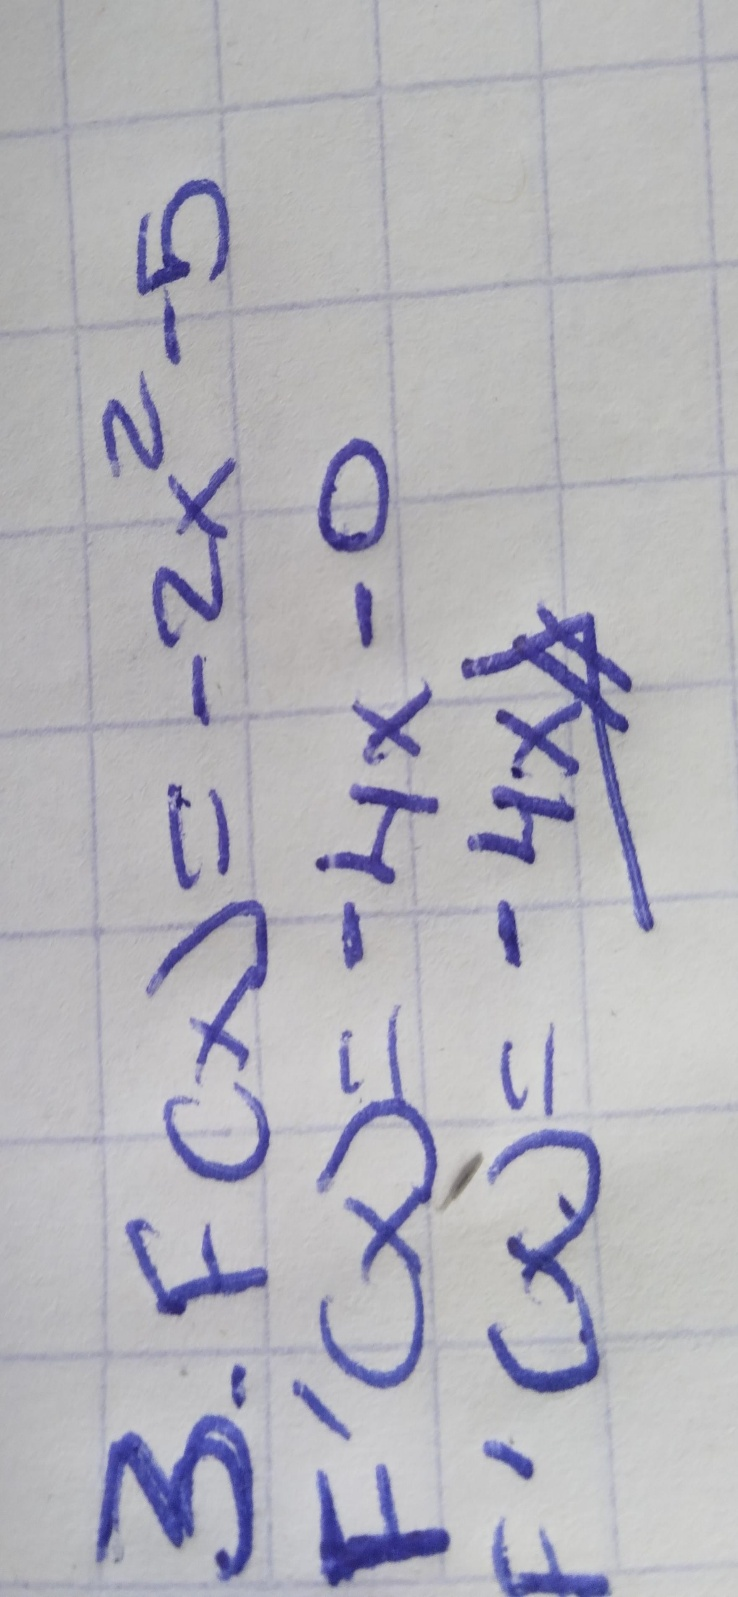 3. F(x) = -2x² - 5
F'(x) = -4x - 0
F'(x) = -4x